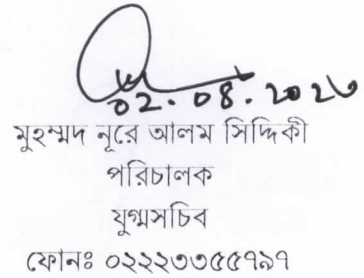 ০২.০৪.২০২৩
মুহম্মদ নূরে আলম সিদ্দিকী
পরিচালক
যুগ্মসচিব
ফোনঃ ০২২২৩৩৫৫৭৯৭